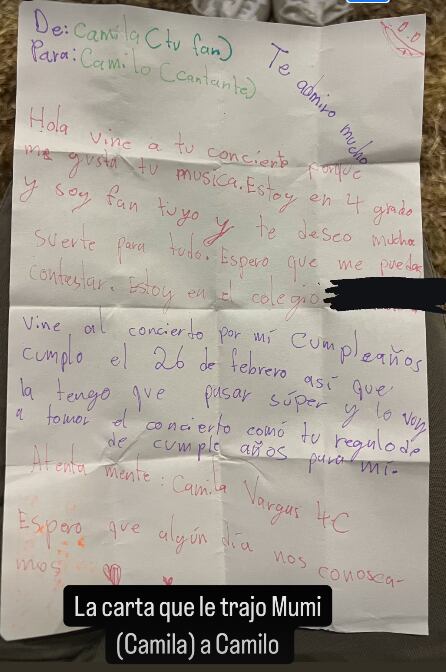 De: Camila (tu fan)
Para: Camilo (cantante)
Te admiro mucho
Hola vine a tu concierto porque
me gusta tu musica. Estoy en 4 grado
y soy fan tuyo y te deseo mucha
suerte para todo. Espero que me puedas
contestar. Estoy en el colegio
Vine al concierto por mi cumpleaños
cumplo el 26 de febrero así que
la tengo que pasar súper y lo voy
a tomar el concierto como tu regalo de
de cumple años para mí.
Atenta mente: Camila Vargas 4C
Espero que algún día nos conosca-
mos
La carta que le trajo Mumi
(Camila) a Camilo